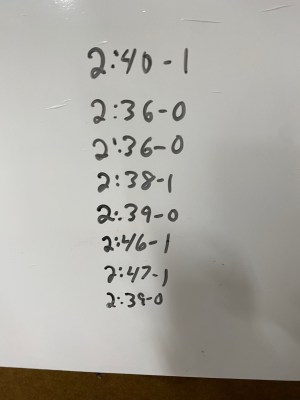 2:40-1
2:36-0
2:36-0
2:38-1
2:39-0
2:46-1
2:47-1
2:39-0